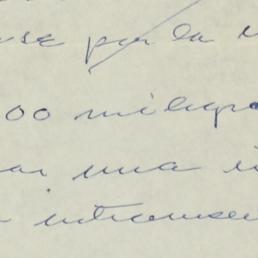 use por la
00 miligra
ar una i
intramus